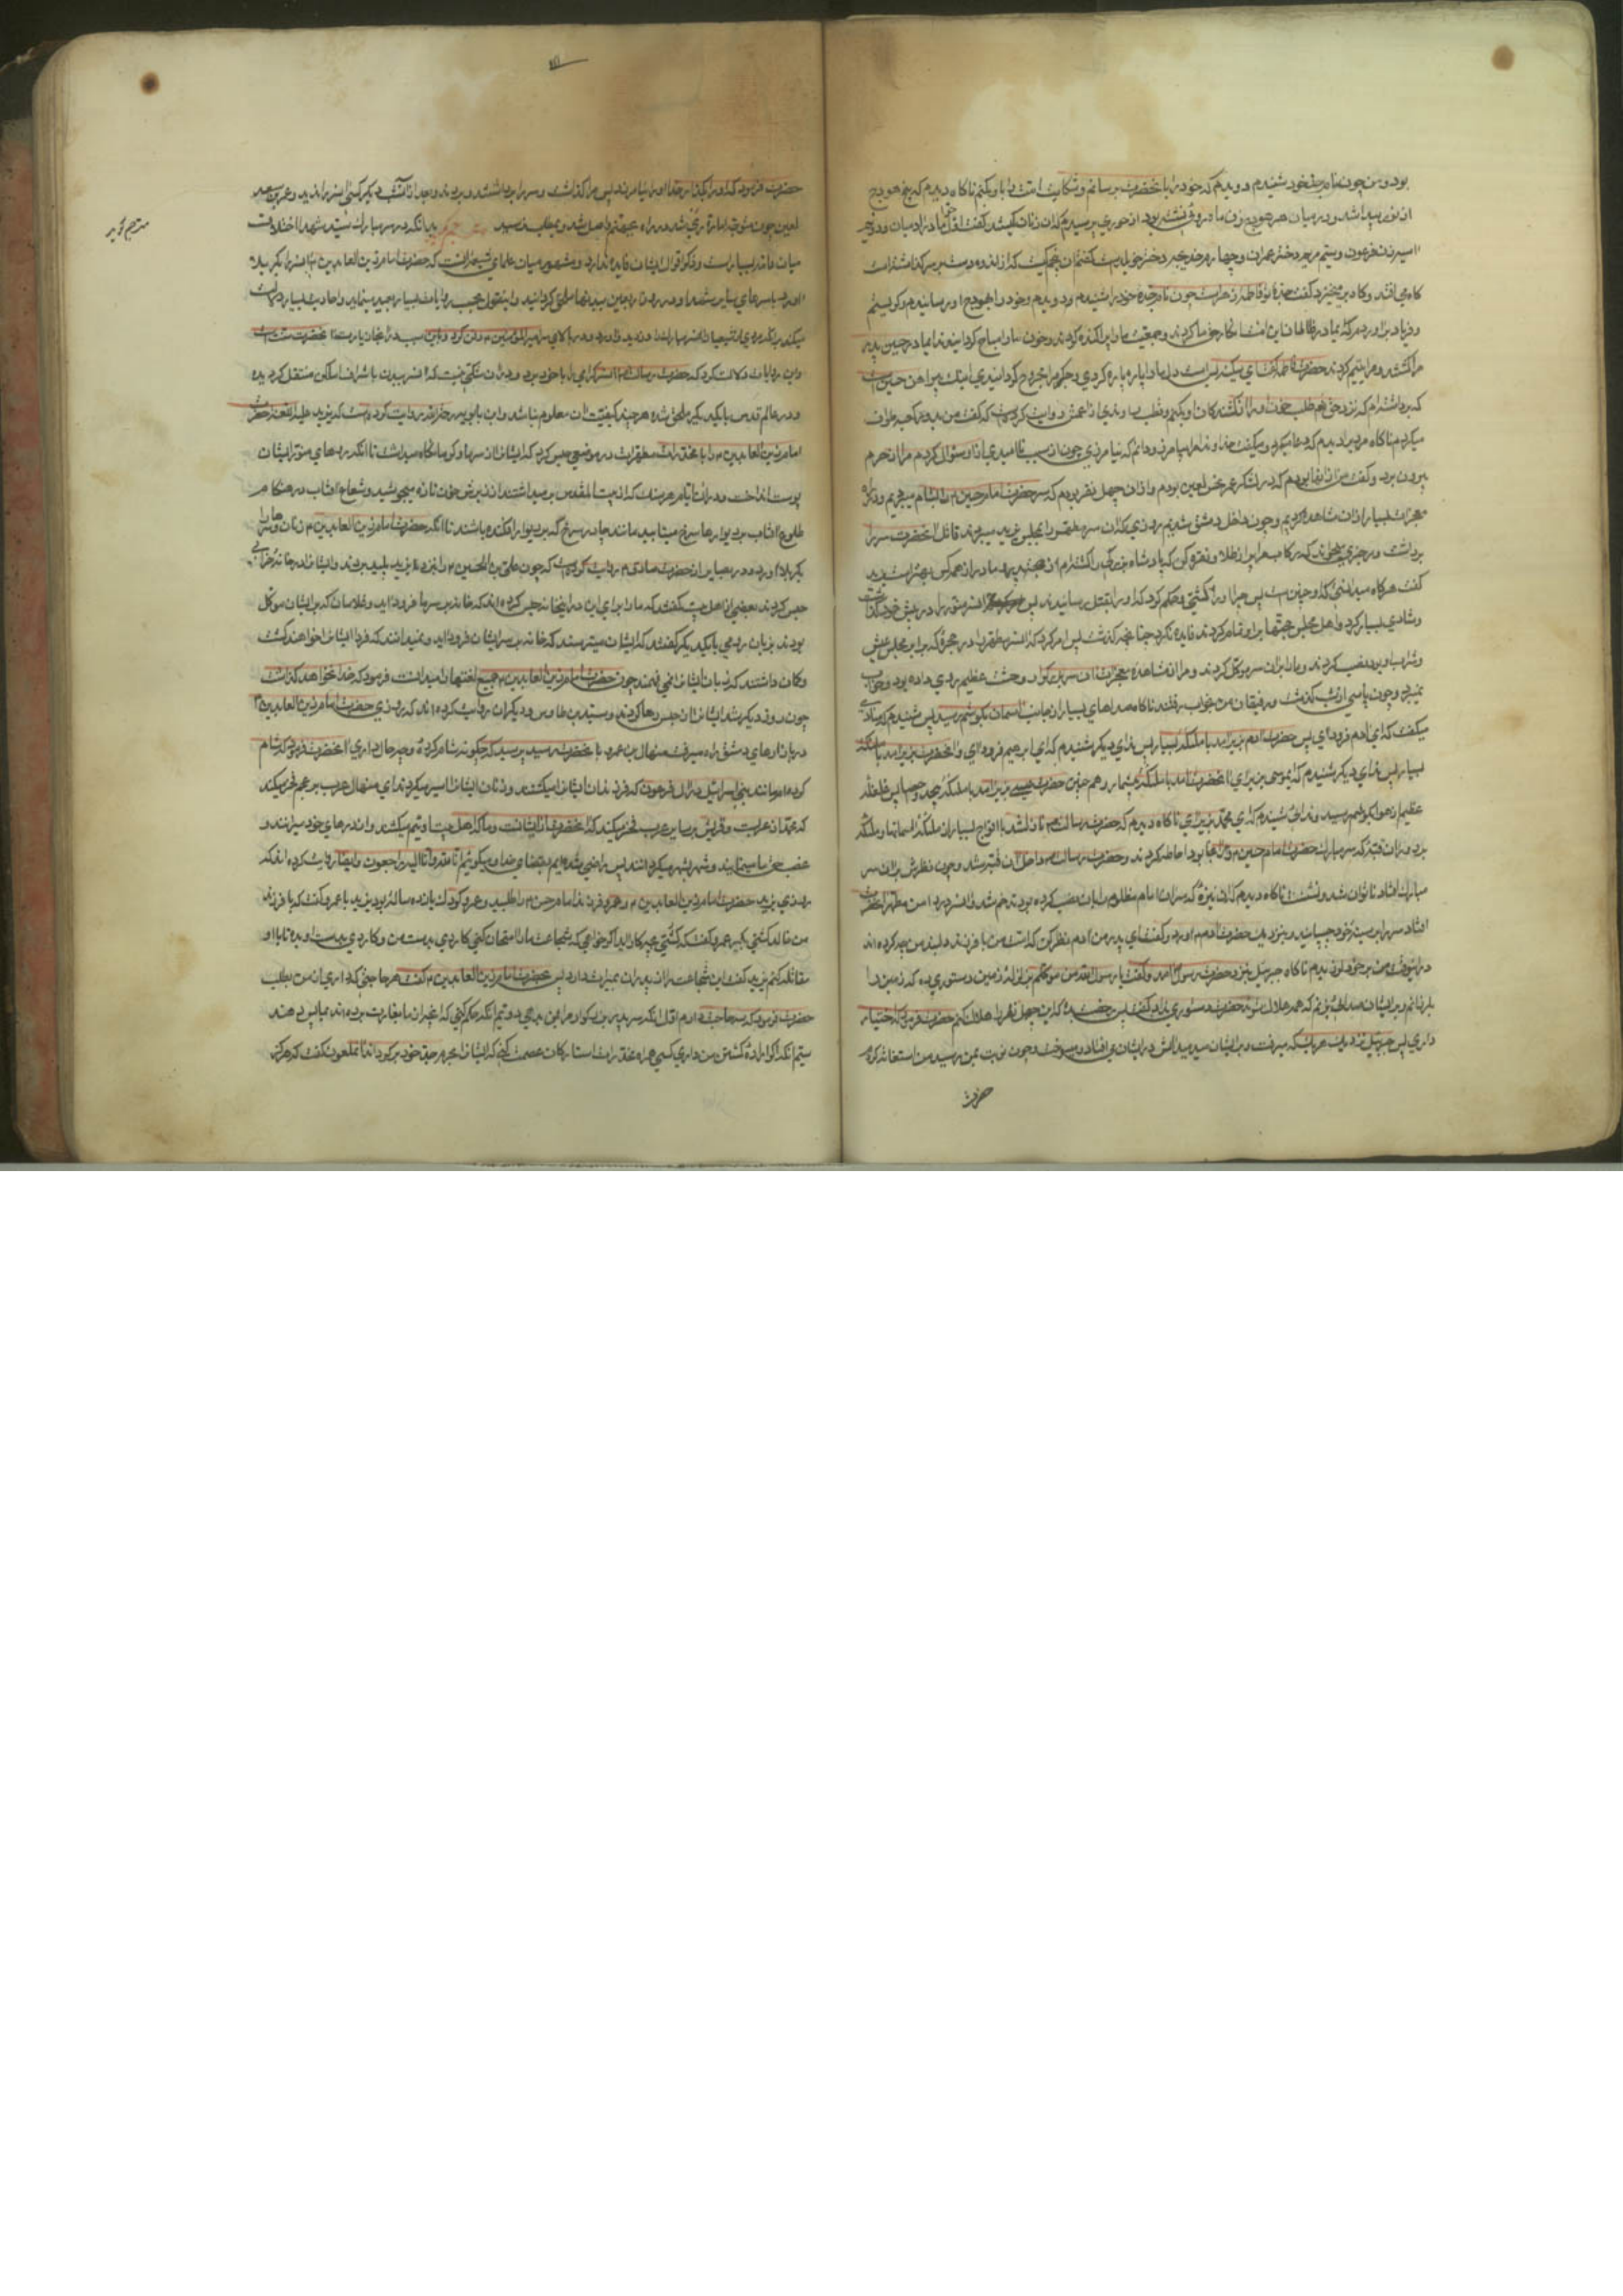 بود و من چون نام جد خود شنیدم دویدم که خود را با حضرت برسانم و شکایت امت را باو بکنم ناکاه دیدم که پنج هودج
از نور پیدا شد و در میان هر هودج زنی ماه رو نشسته بود از حوری پرسیدم که این زنان کیستند گفت اول حوا مادر ادمیان و دویم
اسیه زن فرعون و سیم مریم دختر عمران و چهارم خدیجه دختر خویلد گفتم این پنجم کیست که از اندوه دست بر سر گذاشته است
کاه می افتد و کاه برمیخیزد گفت جده تو فاطمه زهراست چون نام جده خود را شنیدم دویدم و خود را بهودج او رسانیدم و گریستم
و فریاد براوردم که ای مادر ظالمان این امت انکار حق ما کردند و جمعیت ما را پراکنده کردند و خون ما را مباح کردانیدند ای مادر حسین پدر
مرا کشتند و مرا یتیم کردند حضرت فاطمه گفت ای سکینه بس است دل مرا پاره پاره کردی و جگر مرا مجروح کردانیدی اینک پیراهن حسین است
که برداشته ام که نزد حق تعالی طلب خون او را از کشندگان او بکنم و قطب راوندی از اعمش روایت کرده است که گفت من بدور کعبه طواف
میکردم ناکاه مردی را دیدم که دعا میکرد و میگفت خداوندا مرا بیامرز و دانم که نیامرزی چون از سبب ناامیدی او سؤال کردم مرا از حرم
بیرون برد و گفت من از انها بودم که در لشکر عمر نحس لعین بودم و از ان چهل نفر بودم که سر حضرت امام حسین را بشام میبردیم و در راه
معجزات بسیار از ان مشاهده کردیم و چون داخل دمشق شدیم روزی که ان سر مطهر را بمجلس یزید میبردند قاتل انحضرت سر را
برداشت و رجزی میخواند که رکاب مرا پر از طلا و نقره کن که پادشاه بزرگی را کشته ام از جهت پدر و مادر از همه کس بهتر است یزید
گفت هرگاه میدانستی که او چنین است پس چرا او را کشتی و حکم کرد که او را بقتل رسانیدند پس سر منور را در پیش خود گذاشت
و شادی بسیار کرد و اهل مجلس حجتها بر او تمام کردند و فایده نکرد چنانچه گذشت پس امر کرد که ان سر مطهر را در حجره که برابر مجلس عیش
و شراب او بود نصب کردند و ما را بر ان سر موکل کردند و مرا از مشاهده معجزات ان سر بزرگوار وحشت عظیم روی داده بود و خواب
نمیبرد و چون پاسی از شب گذشت و رفیقان من بخواب رفتند ناکاه صداهای بسیار از جانب اسمان بگوشم رسید پس شنیدم که منادی
میگفت که ای ادم فرود ای پس حضرت ادم بزیر امد با ملائکه بسیار پس ندای دیگر شنیدم که ای ابرهیم فرود ای و انحضرت بزیر امد با ملائکه
بسیار پس ندای دیگر شنیدم که ای موسی بزیر ای انحضرت امد با ملائکه بیشمار و همچنین حضرت عیسی بزیر امد با ملائکه بیحد و حصر پس غلغله
عظیم از هوا بگوشم رسید و ندائی شنیدم که ای محمد بزیر ای ناکاه دیدم که حضرت رسالت نازل شد با افواج بسیار از ملائکه اسمانها و ملائکه
بر دور ان قبه که سر مبارک حضرت امام حسین در انجا بود احاطه کردند و حضرت رسالت داخل ان قبه شد و چون نظرش بر ان سر
مبارک افتاد ناتوان شد و نشست ناکاه دیدم که ان نیزه که سر ان امام مظلوم را بر ان نصب کرده بودند خم شد و ان سر در دامن مطهر انحضرت
افتاد سر را بر سینه خود چسپانید و بنزدیک حضرت ادم اورد و گفت ای پدر من ادم نظر کن که امت من با فرزند دلبند من چه کرده اند
در اینوقت من بر خود لرزیدم ناکاه جبرئیل بنزد حضرت رسول امد و گفت یا رسول الله من موکلم بزلزله زمین دستوری ده که زمین را
بلرزانم و بر ایشان صدائی بزنم که همه هلاک شوند حضرت دستوری نداد گفت پس رخصت بده که این چهل نفر را هلاک کنم حضرت فرمود که اختیار
داری پس جبرئیل بنزدیک هر یک که میرفت و بر ایشان میدمید اتش در ایشان می افتاد و میسوخت و چون نوبت بمن رسید من استغاثه کردم
حضرت
حضرت فرمود که او را بگذارید خدا او را نیامرزد پس مرا گذاشت و سر را برداشتند و بردند و بعد از ان شب دیگر کسی ان سر را ندید و عمر بن سعد
لعین چون متوجه امارت ری شد در راه بجهنم واصل شد و بمطلب نرسید مترجم گوید بدانکه در سر مبارک سید شهدا اختلافست
میان عامه بسیار است و ذکر اقوال ایشان فایده ندارد و مشهور میان علمای شیعه انست که حضرت امام زین العابدین ان سر را بکربلا
اورد با سرهای سایر شهدا و در روز اربعین ببدنها ملحق کردانید و اینقول بحسب روایات بسیار بعید مینماید و احادیث بسیار دلالت
میکند بر انکه مردی از شیعیان ان سر مبارک را دزدید و اورد و در بالای سر امیر المؤمنین دفن کرد و باین سبب در انجا زیارت انحضرت سنت است
و این روایات دلالت کرد که حضرت رسالت ان سر گرامی را با خود برد و در ان شکی نیست که ان سر و بدن باشرف اماکن منتقل کردیده
و در عالم قدس بایکدیگر ملحق شده هر چند کیفیت ان معلوم نباشد و ابن بابویه رحمة الله روایت کرده است که یزید علیه اللعنه حضرت
امام زین العابدین را با مخدرات مطهرات در موضعی حبس کرد که ایشان را از سرما و گرما نگاه نمیداشت تا انکه روهای منور ایشان
پوست انداخت و در ان ایام هر سنگ که از بیت المقدس برمیداشتند از زیرش خون تازه میجوشید و شعاع افتاب در هنگام
طلوع افتاب بر دیوارها سرخ میتابید مانند چادر سرخ که بر دیوار افکنده باشند تا انکه حضرت امام زین العابدین زنان و سرها را
بکربلا اورد و در بصایر از حضرت صادق روایت کرده است که چون علی بن الحسین را بنزد یزید پلید بردند و ایشان را در خانه خرابی
حبس کردند بعضی از اهل بیت گفتند که ما را برای این در اینخانه حبس کرده اند که خانه بر سر ما فرود اید و غلامان که بر ایشان موکل
بودند بزبان رومی بایکدیگر گفتند که ایشان میترسند که خانه بر سر ایشان فرود اید و نمیدانند که فردا ایشان را خواهند کشت
و گمان داشتند که زبان ایشان را نمی فهمند چون حضرت امام زین العابدین جمیع لغتها را میدانست فرمود که خدا نخواهد گذاشت
چون روز دیگر شد ایشان را از ان حبس رها کردند و سید بن طاوس و دیگران روایت کرده اند که روزی حضرت امام زین العابدین
در بازارهای دمشق راه میرفت منهال بن عمرو با حضرت رسید پرسید که چگونه شام کرده و چه حال داری انحضرت فرمود که شام
کرده ام مانند بنی اسرائیل در ال فرعون که فرزندان ایشان را میکشتند و زنان ایشان را اسیر میکردند ای منهال عرب بر عجم فخر میکند
که محمد از عربست و قریش بر سایر عرب فخر میکند که انحضرت از ایشانست و ما که اهل بیت اوئیم میکشند و از درهای خود میرانند و
غصب حق ما مینمایند و شهر بشهر میگردانند پس راضی شده ایم بقضای خدا و میگوئیم انا لله و انا الیه راجعون و ایضا روایت کرده اند که
روزی یزید حضرت امام زین العابدین و عمرو فرزند امام حسن را طلبید و عمرو کودک یازده ساله بود یزید با عمرو گفت که با فرزند
من خالد کشتی بگیر عمرو گفت که کشتی بچه کار اید اگر خواهی که شجاعت ما را امتحان کنی کاردی بدست من و کاردی بدست او بده تا با او
مقاتله کنم یزید گفت این شجاعت را از پدران بمیراث دارد پس بحضرت امام زین العابدین گفت هر حاجتی که داری از من بطلب
حضرت فرمود که سه حاجت دارم اول انکه سر پدر بزرگوار مرا بمن بدهی دویم انکه حکم کنی که انچه از ما بغارت برده اند بما پس دهند
سیم انکه اگر اراده کشتن من داری کسی همراه مخدرات استار کان عصمت کنی که ایشان را بحرم جد خود برگرداند ان ملعون گفت که هرگز
مترجم گوید